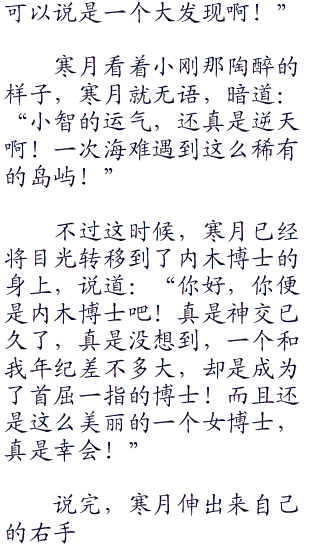 可以说是一个大发现啊！”
寒月看着小刚那陶醉的
样子，寒月就无语，暗道：
“小智的运气，还真是逆天
啊！一次海难遇到这么稀有
的岛屿！”
不过这时候，寒月已经
将目光转移到了内木博士的
身上，说道：“你好，你便
是内木博士吧！真是神交已
久了，真是没想到，一个和
我年纪差不多大，却是成为
了首屈一指的博士！而且还
是这么美丽的一个女博士，
真是幸会！”
说完，寒月伸出来自己
的右手